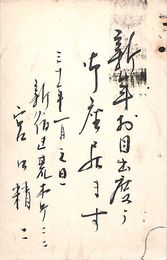 新年お目出度う
御座居ます
三十年一月元日
新宿区荒木町二二
宮口精二